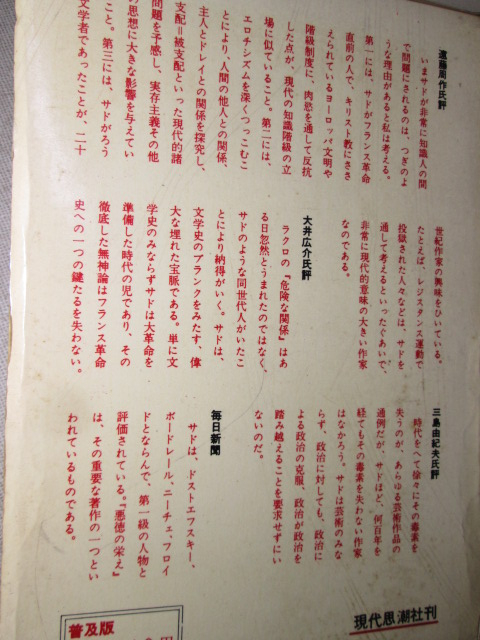 遠藤周作氏評
いまサドが非常に知識人の間
で問題にされるのは、つぎのよ
うな理由があると私は考える。
第一には、サドがフランス革命
直前の人で、キリスト教にささ
えられているヨーロッパ文明や
階級制度に、肉慾を通して反抗
した点が、現代の知識階級の立
場に似ていること。第二には、
エロチシズムを深くつっこむこ
とにより、人間の他人との関係、
主人とドレイとの関係を探究し、
支配=被支配といった現代的諸
問題を予感し、実存主義その他
の思想に大きな影響を与えてい
こと。第三には、サドがろう
文学者であったことが、二十
世紀作家の興味をひいている。
たとえば、レジスタンス運動で
投獄された人々などは、サドを
通して考えるといったぐあいで、
非常に現代的意味の大きい作家
なのである。
大井広介氏評
ラクロの『危険な関係』はあ
る日忽然とうまれたのではなく、
サドのような同世代人がいたこ
とにより納得がいく。サドは、
文学史のブランクをみたす、偉
大な埋れた宝脈である。単に文
学史のみならずサドは大革命を
準備した時代の児であり、その
徹底した無神論はフランス革命
史への一つの鍵たるを失わない。
三島由紀夫氏評
時代をへて徐々にその毒素を
失うのが、あらゆる芸術作品の
通例だが、サドほど、何百年を
経てもその毒素を失わない作家
はなかろう。サドは芸術のみな
らず、政治に対しても、政治に
よる政治の克服、政治が政治を
踏み越えることを要求せずにい
ないのだ。
毎日新聞
サドは、ドストエフスキー、
ボードレール、ニーチェ、フロイ
ドとならんで、第一級の人物と
評価されている。『悪徳の栄え』
は、その重要な著作の一つとい
われているものである。
現代思潮社刊
普及版